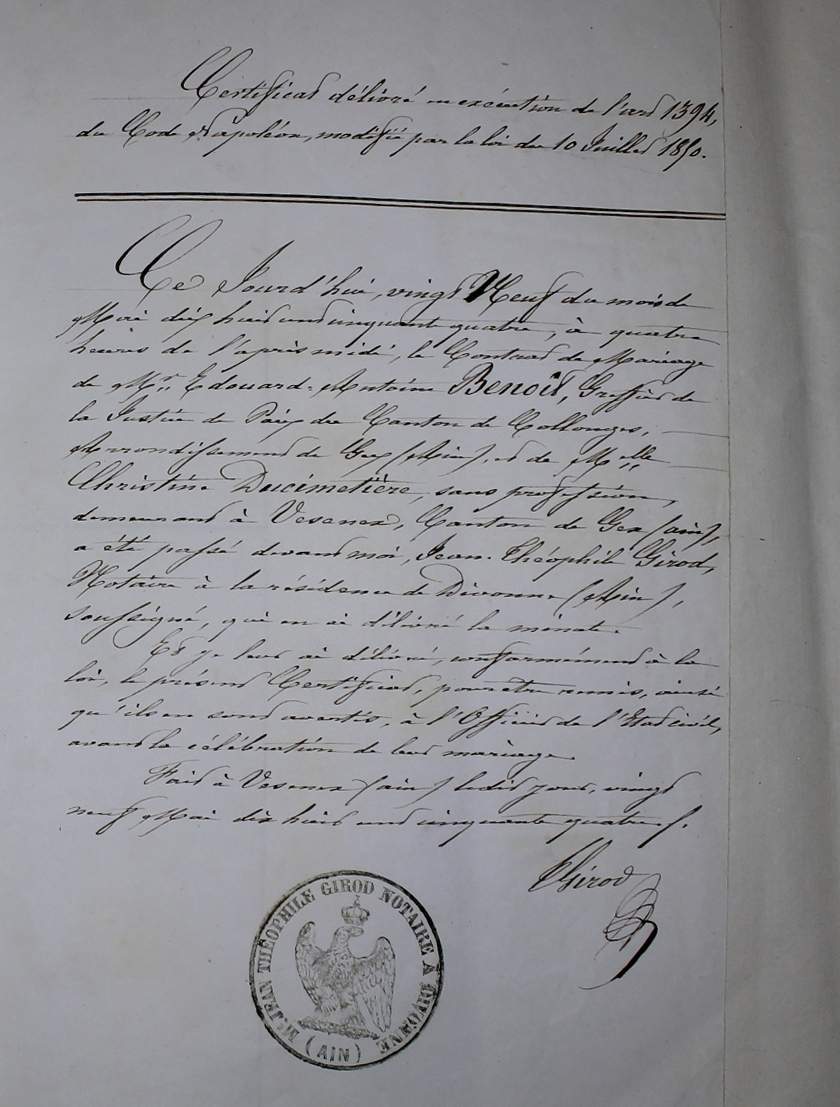 Certificat délivré en exécution de l'art 1394,
du Code Napoléon, modifié par la loi du 10 Juillet 1850.
Ce Jourd'hui, vingt Neuf du mois de
Mai dix huit cent cinquante quatre, à quatre
heures de l'après midi, le Contrat de Mariage
de Mr. Edouard-Antoine Benoit, Greffier de
la Justice de Paix du Canton de Collonges,
Arrondissement de Gex (Ain), et de Melle
Christine Ducimetière, sans profession,
demeurant à Vesenex, Canton de Gex (ain),
a été passé devant moi, Jean-Théophile Girod,
Notaire à la résidence de Divonne (Ain),
soussigné, qui en ai délivré la minute.
Et je leur ai délivré, conformément à la
loi, le présent Certificat, pour être remis, ainsi
qu'ils en sont avertis, à l'Officier de l'Etat civil,
avant la célébration de leur mariage.
Fait à Vesenex (ain) ledit jour, vingt
neuf Mai dix huit cent cinquante quatre.
Girod
Me JEAN THÉOPHILE GIROD NOTAIRE A DIVONNE
(AIN)